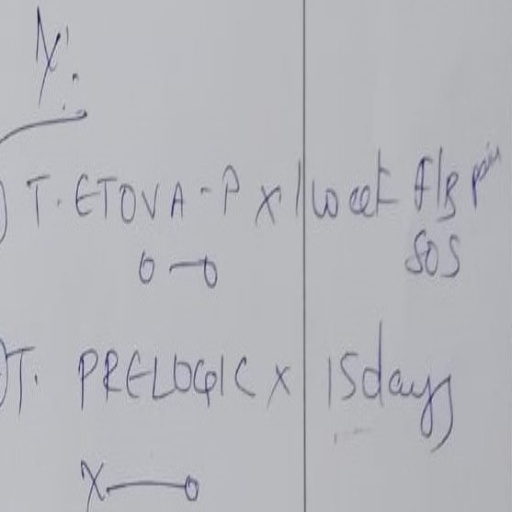 ) T. ETOVA-P x 1 week F/B pain
SOS
o—o
) T. PRELOGIC x 15days
x—o